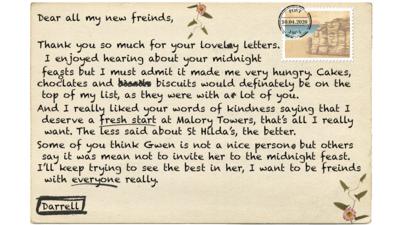 Dear all my new freinds,
POST
10.04.2020
Thank you so much for your lovelay letters.
I enjoyed hearing about your midnight
feasts but I must admit it made me very hungry. Cakes,
choclates and biscuits would definately be on the
top of my list, as they were with a lot of you.
And I really liked your words of kindness saying that I
deserve a fresh start at Malory Towers, that's all I really
want. The less said about St Hilda's, the better.
Some of you think Gwen is not a nice person but others
say it was mean not to invite her to the midnight feast.
I'll keep trying to see the best in her, I want to be freinds
with everyone really.
Darrell